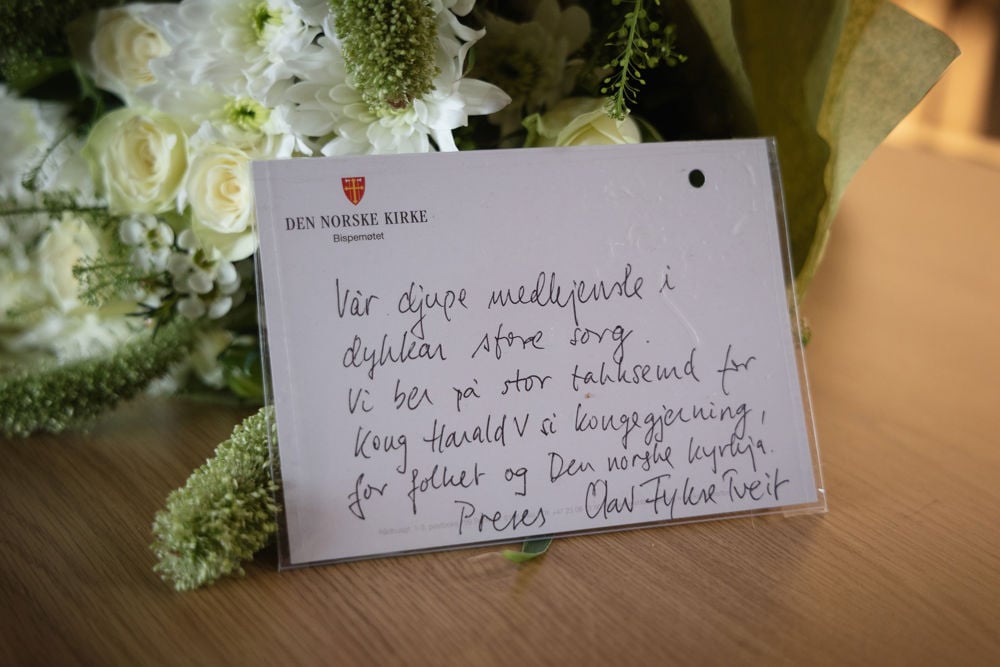 DEN NORSKE KIRKE
Bispemøtet
Vår djupe medkjensle i
dykkar store sorg.
Vi ber på stor takksemd for
Kong Harald V si kongegjerning,
for folket og Den norske kyrkja.
Preses Olav Fykse Tveit